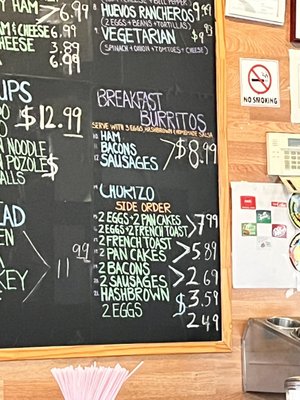 HUEVOS RANCHEROS 9.99
(2 EGGS + BEANS + TORTILLAS)
VEGETARIAN
(SPINACH + ONION + TOMATOES + CHEESE)
6.99
6.99
3.89
CHEESE
6.99
NO SMOKING
BREAKFAST
BURRITOS
SERVE WITH 3 EGGS, HASHBROWN & HOMEMADE SALSA
HAM
BACONS
SAUSAGES
$8.99
$12.99
NOODLE
POZOLE
CHORIZO
SIDE ORDER
2 EGGS + 2 PAN CAKES
7.99
2 EGGS + 2 FRENCH TOAST
2 FRENCH TOAST
5.89
2 PAN CAKES
2 BACONS
2.69
2 SAUSAGES
HASHBROWN
$3.59
2 EGGS
2.49
11.99